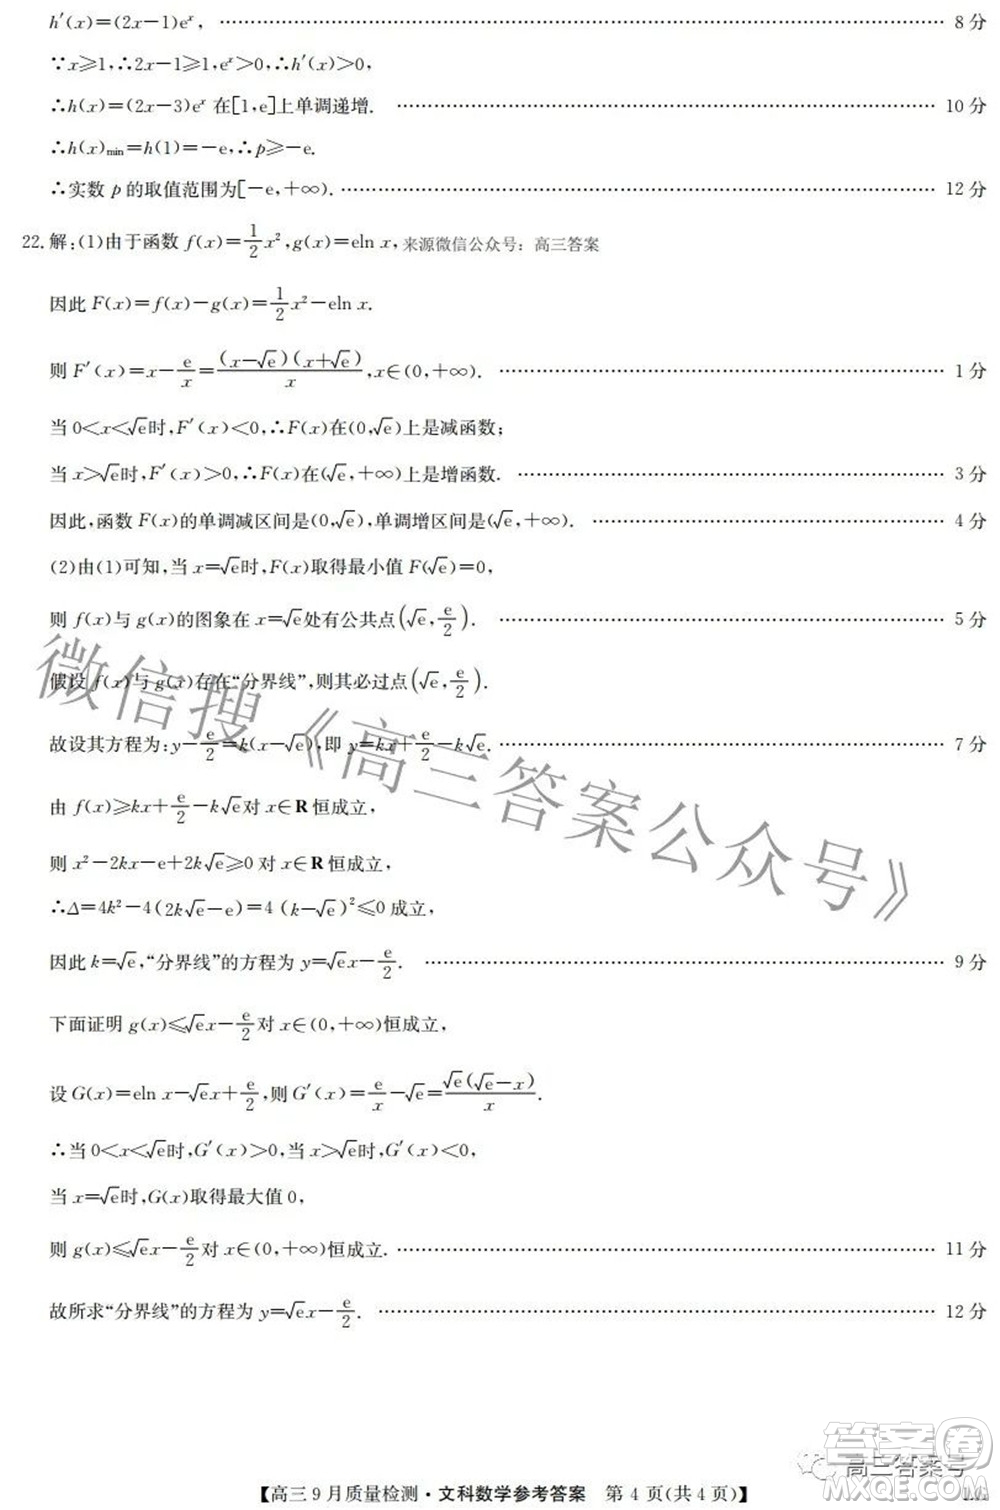 h′(x)=(2x-1)eˣ, ………… 8分
∵x≥1,∴2x-1≥1,eˣ>0,∴h′(x)>0,
∴h(x)=(2x-3)eˣ在[1,e]上单调递增. ………… 10分
∴h(x)min=h(1)=-e,∴p≥-e.
∴实数p的取值范围为[-e,+∞). ………… 12分
22.解:(1)由于函数f(x)=1/2x²,g(x)=eln x, 来源微信公众号:高三答案
因此F(x)=f(x)-g(x)=1/2x²-eln x.
则F′(x)=x-e/x=(x-√e)(x+√e)/x,x∈(0,+∞). ………… 1分
当0<x<√e时,F′(x)<0,∴F(x)在(0,√e)上是减函数;
当x>√e时,F′(x)>0,∴F(x)在(√e,+∞)上是增函数. ………… 3分
因此,函数F(x)的单调减区间是(0,√e),单调增区间是(√e,+∞). ………… 4分
(2)由(1)可知,当x=√e时,F(x)取得最小值F(√e)=0,
则f(x)与g(x)的图象在x=√e处有公共点(√e,e/2). ………… 5分
假设f(x)与g(x)存在“分界线”,则其必过点(√e,e/2).
故设其方程为:y-e/2=k(x-√e),即y=kx+e/2-k√e. ………… 7分
由f(x)≥kx+e/2-k√e对x∈R恒成立,
则x²-2kx-e+2k√e≥0对x∈R恒成立,
∴Δ=4k²-4(2k√e-e)=4(k-√e)²≤0成立,
因此k=√e,“分界线”的方程为y=√ex-e/2. ………… 9分
下面证明g(x)≤√ex-e/2对x∈(0,+∞)恒成立,
设G(x)=eln x-√ex+e/2,则G′(x)=e/x-√e=√e(√e-x)/x.
∴当0<x<√e时,G′(x)>0,当x>√e时,G′(x)<0,
当x=√e时,G(x)取得最大值0,
则g(x)≤√ex-e/2对x∈(0,+∞)恒成立. ………… 11分
故所求“分界线”的方程为y=√ex-e/2. ………… 12分
微信搜《高三答案公众号》
答案卷
高三答案号
【高三9月质量检测·文科数学参考答案 第4页(共4页)】